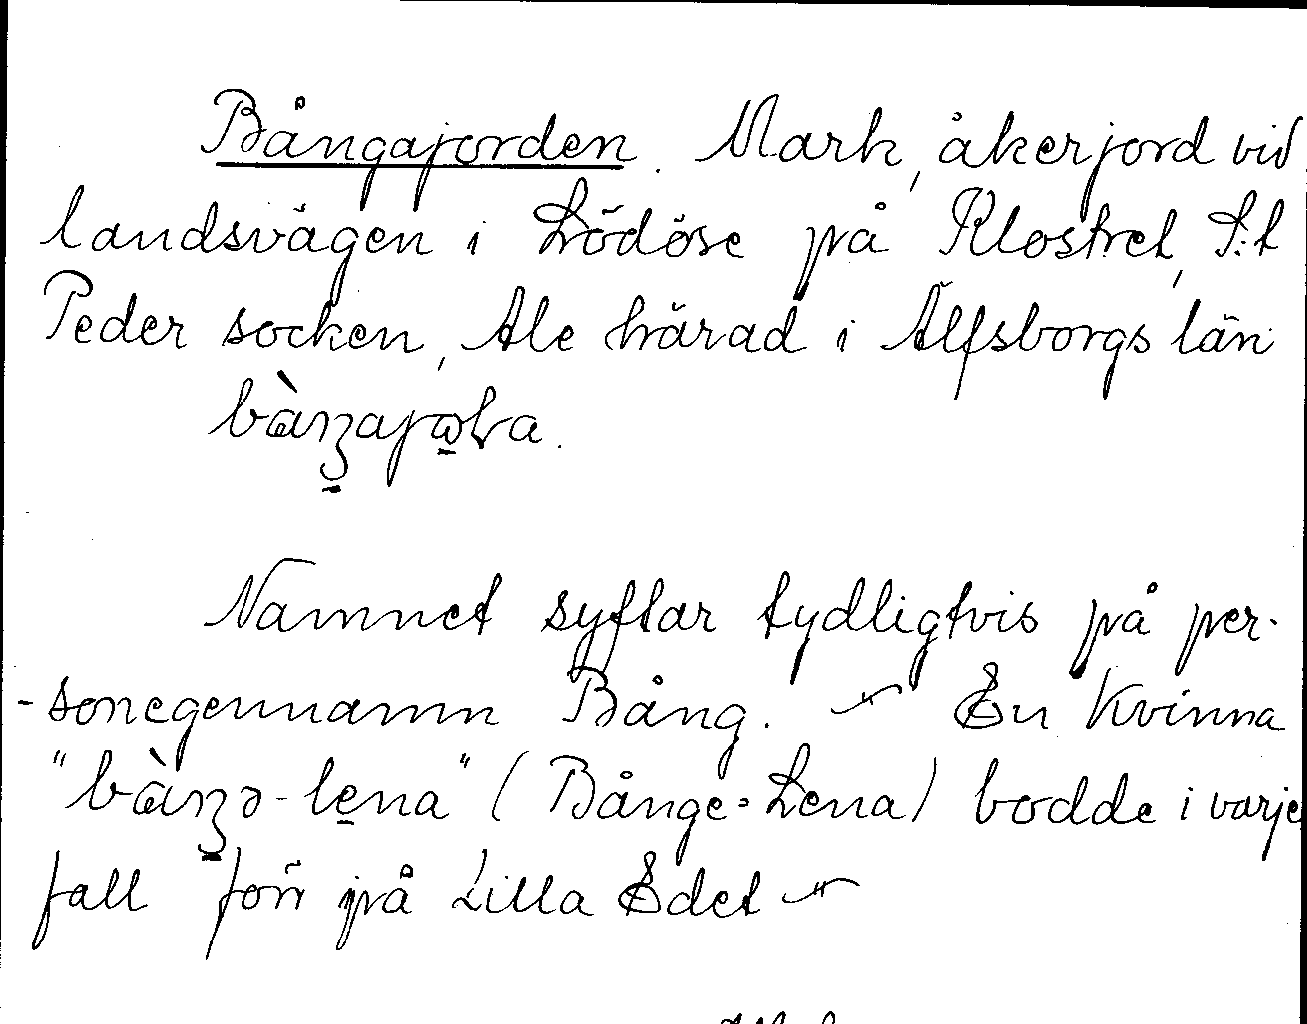 Bångajorden. Mark, åkerjord vid
landsvägen i Lödöse på Klostret, S:t
Peder socken, Ale härad i Älfsborgs län
Namnet syftar tydligtvis på per-
-sonegennamn Bång. En kvinna
(Bånge-Lena) bodde i varje
fall förr på Lilla Edet